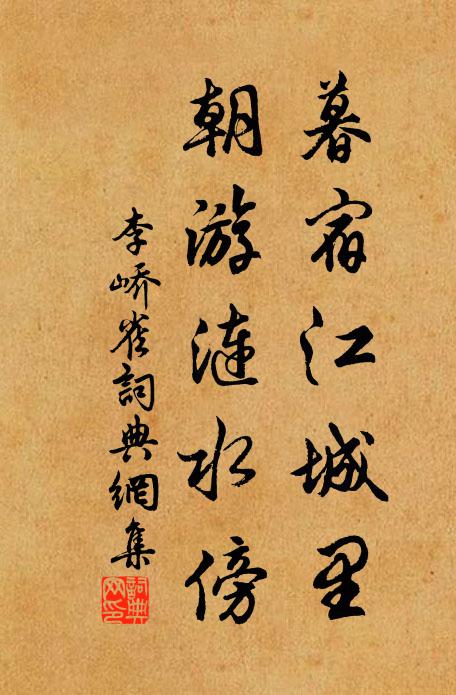 暮宿江城里
朝游涟水傍
李峤雀詞典網集
詞典
网印